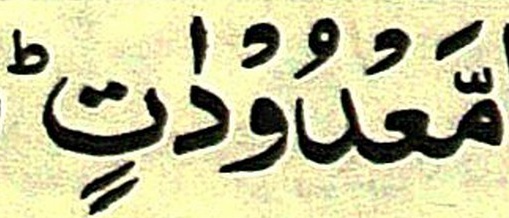 مَّعْدُوْدٰتٍ ؕ